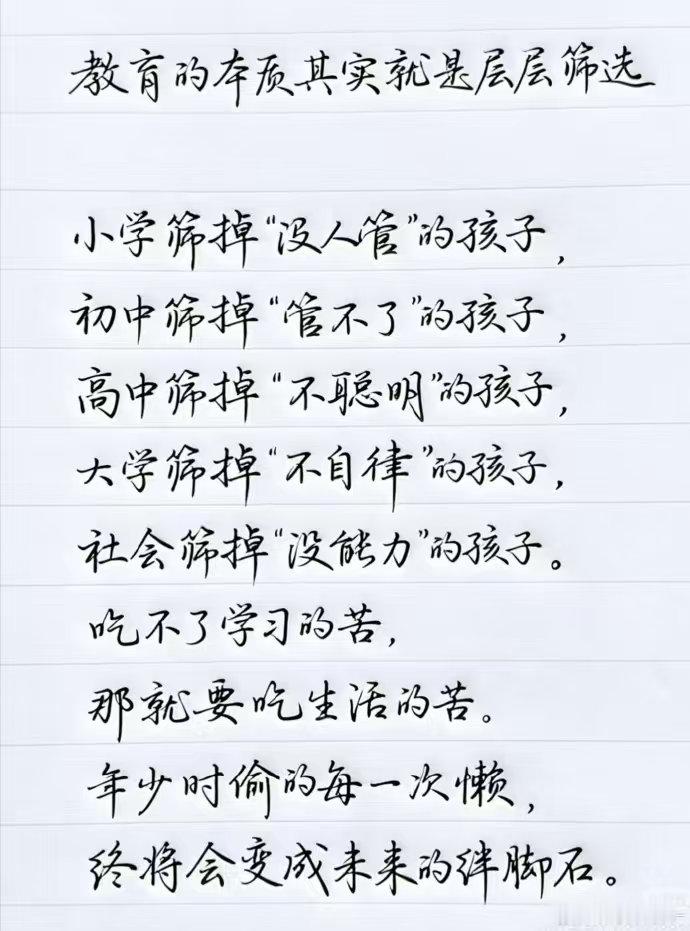 教育的本质其实就是层层筛选
小学筛掉“没人管”的孩子，
初中筛掉“管不了”的孩子，
高中筛掉“不聪明”的孩子，
大学筛掉“不自律”的孩子，
社会筛掉“没能力”的孩子。
吃不了学习的苦，
那就要吃生活的苦。
年少时偷的每一次懒，
终将会变成未来的绊脚石。